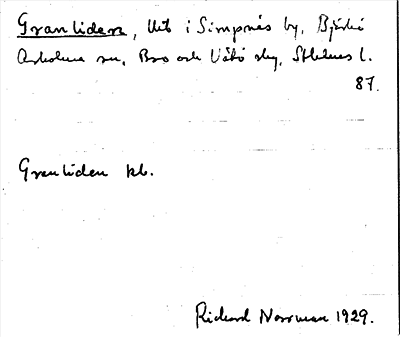 Granliden, Utt i Simpnäs by, Björkö
Arholma sn, Bro och Vätö sky, Sthlms l.
87.
Granliden kb.
Rickard Norrman 1929.